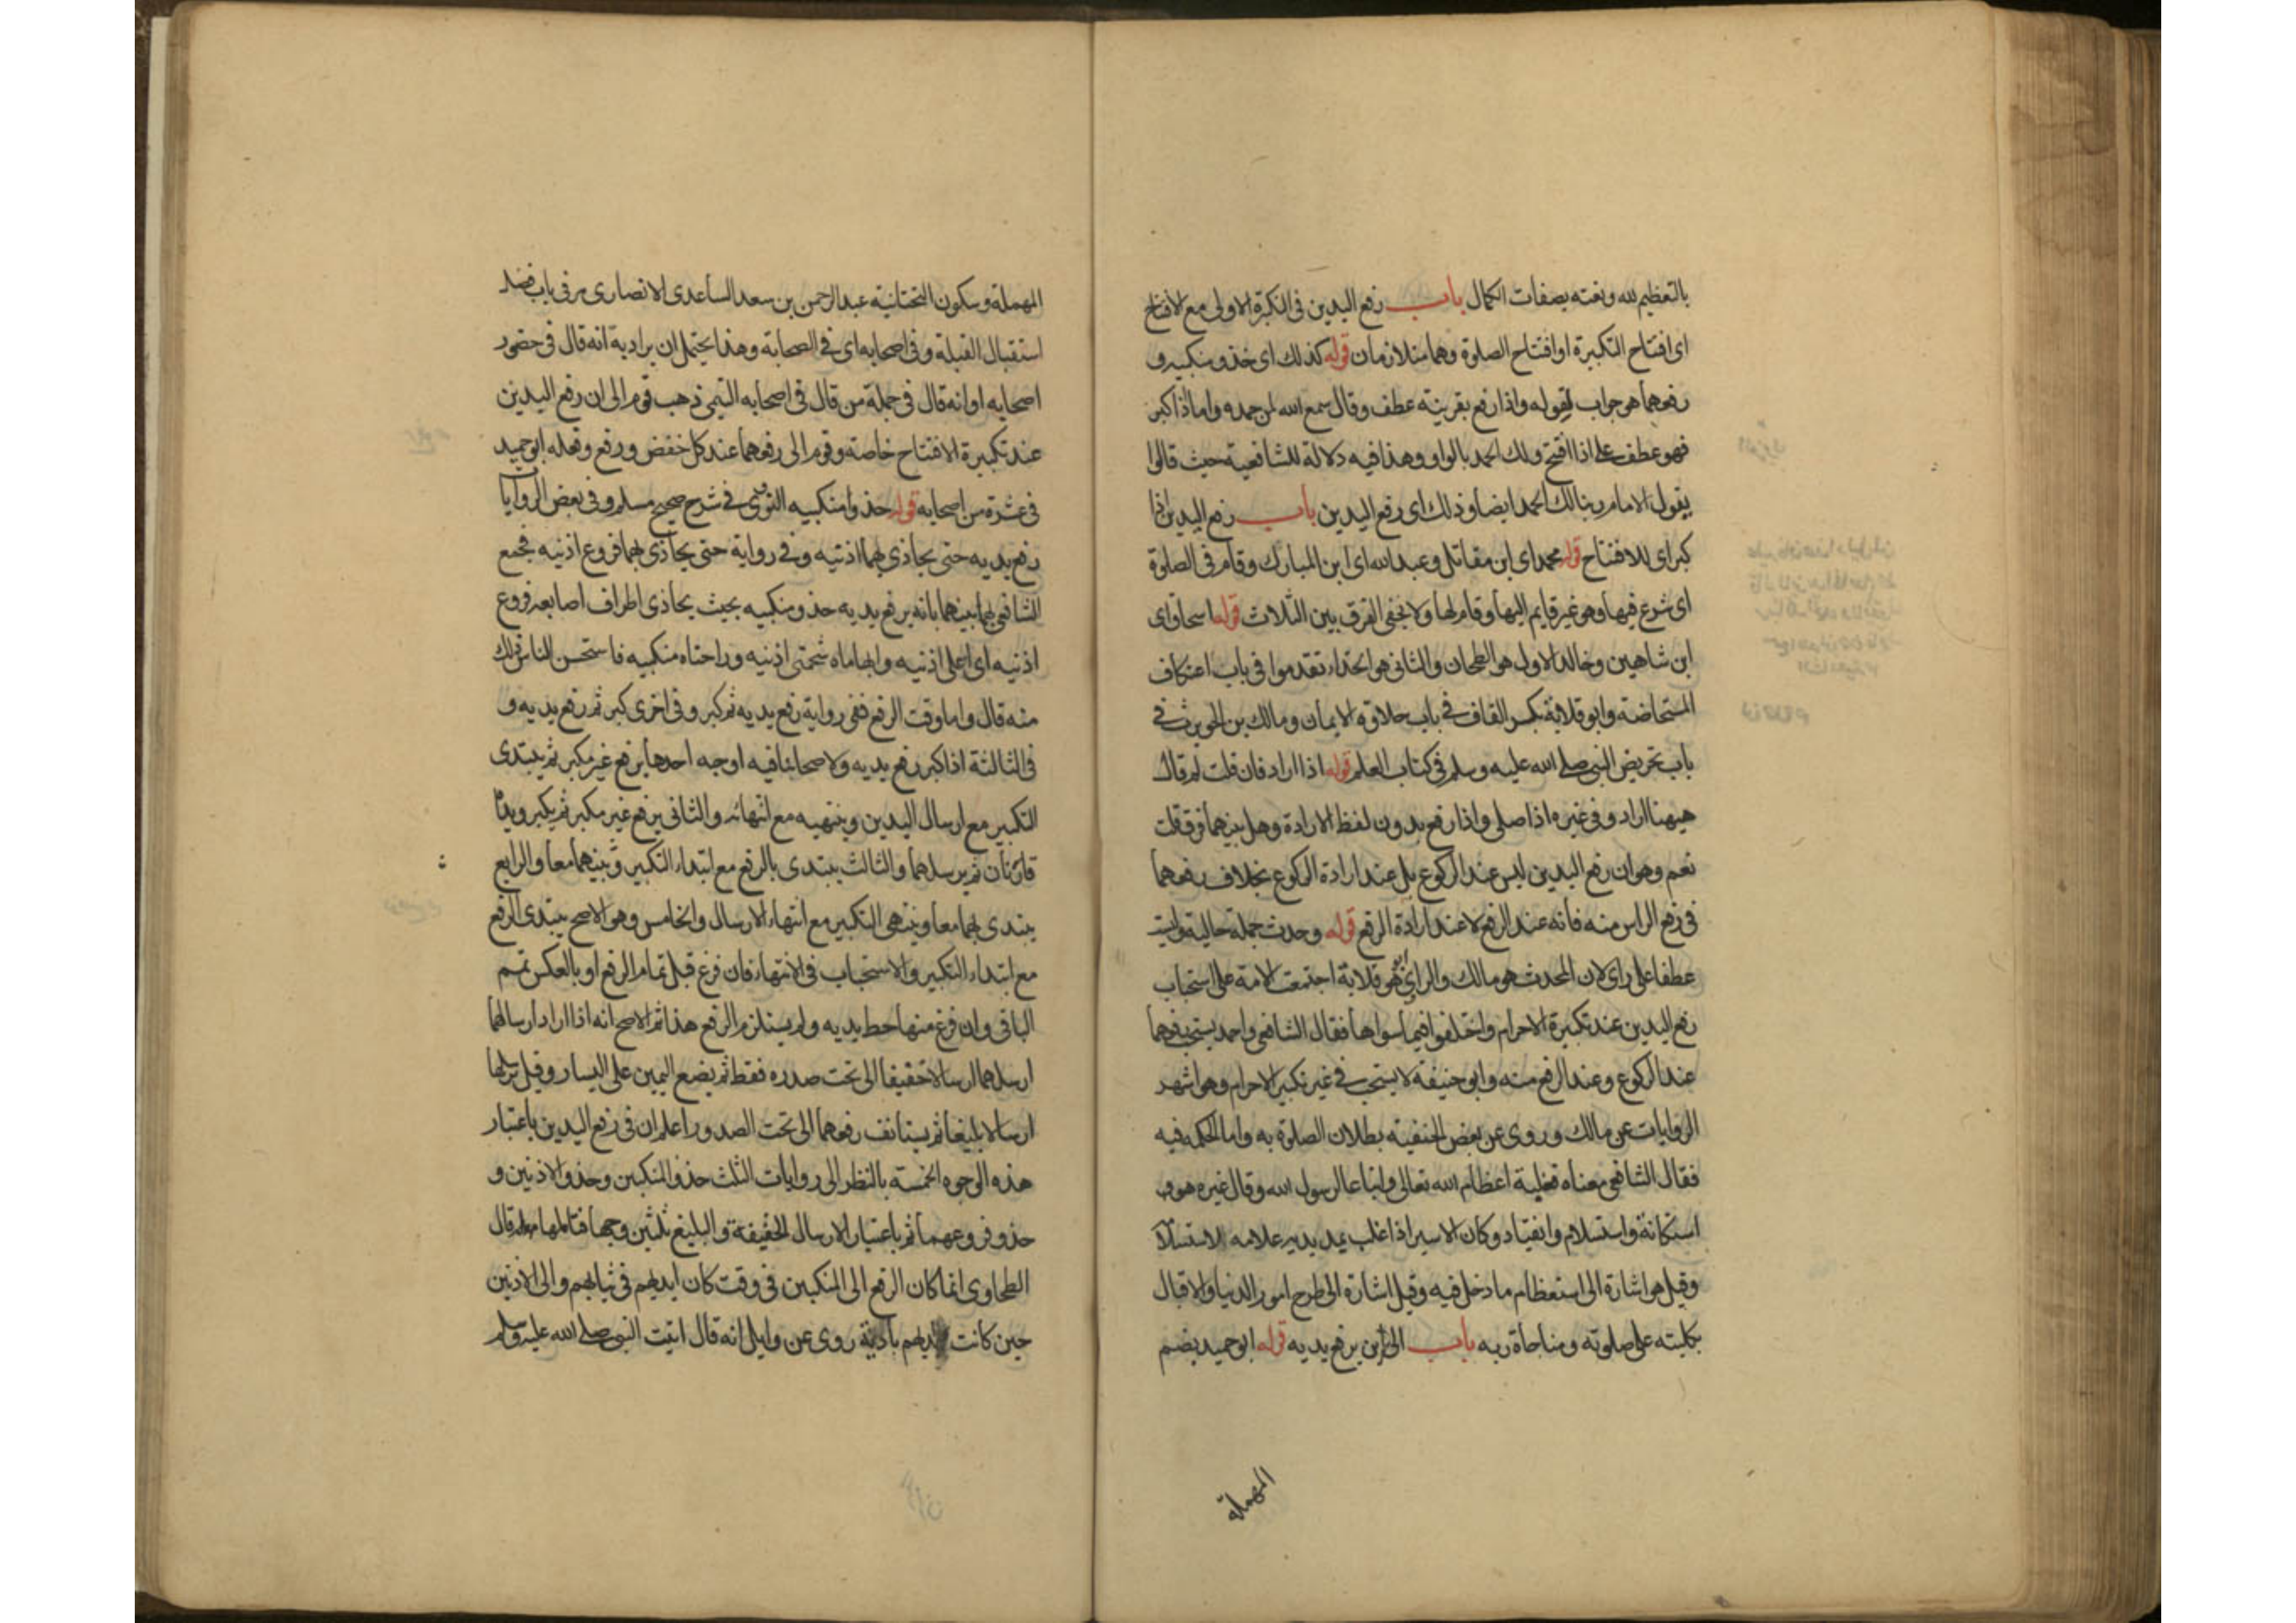 بالتعظيم لله ونعته بصفات الكمال باب رفع اليدين فى التكبيرة الاولى مع الافتتاح
اى افتتاح التكبيرة او افتتاح الصلوة وهما متلازمان قوله كذلك اى حذو منكبيه و
رفعهما هو جواب لقوله واذا رفع بقرينة عطف وقال سمع الله لمن حمده واما اذا كبر
فهو عطف على اذا افتتح ولك الحمد بالواو وهذا فيه دلالة للشافعية حيث قالوا
يقول الامام ربنا لك الحمد ايضا وذلك اى رفع اليدين باب رفع اليدين اذا
كبر اى للافتتاح قوله محمد اى ابن مقاتل وعبد الله اى ابن المبارك وقام فى الصلوة
اى شرع فيها وهو غير قايم اليها وقام لها ولا يخفى الفرق بين الثلاث قوله اسحاق اى
ابن شاهين وخالد الاول هو الطحان والثانى هو الحذاء تقدموا فى باب اعتكاف
المستحاضة وابو قلابة بكسر القاف فى باب حلاوة الايمان ومالك بن الحويرث فى
باب تحريض النبى صلى الله عليه وسلم فى كتاب العلم قوله اذا اراد فان قلت لم قال
هيهنا اراد وفى غيره اذا صلى واذا رفع بدون لفظ الارادة وهل بينهما فرق قلت
نعم وهو ان رفع اليدين ليس عند الركوع بل عند ارادة الركوع بخلاف رفعهما
فى رفع الراس منه فانه عند الرفع لا عند ارادة الرفع قوله وحدث جملة حالية وليست
عطفا على راى لان المحدث هو مالك والراى ابو قلابة اجتمعت الامة على استحباب
رفع اليدين عند تكبيرة الاحرام واختلفوا فيما سواها فقال الشافعى واحمد يستحب رفعهما
عند الركوع وعند الرفع منه وابو حنيفة لا يستحب فى غير تكبير الاحرام وهو اشهر
الروايات عن مالك وروى عن بعض الحنفية بطلان الصلوة به واما الحكمة فيه
فقال الشافعى معناه فعليه اعظام الله تعالى واتباعا لرسول الله وقال غيره هو
استكانة واستسلام وانقياد وكان الاسير اذا غلب يمد يديه علامة لاستسلا
وقيل هو اشارة الى استعظام ما دخل فيه وقيل اشارة الى طرح امور الدنيا والاقبال
بكليته على صلوته ومناجاة ربه باب الى اين يرفع يديه قوله ابو حميد بضم
المهملة
المهملة وسكون التحتانية عبد الرحمن بن سعد الساعدى الانصارى مر فى باب فضل
استقبال القبلة وفى اصحابه اى فى الصحابة وهذا يحتمل ان يراد به انه قال فى حضور
اصحابه او انه قال فى جملة من قال فى اصحابه التيمى ذهب قوم الى ان رفع اليدين
عند تكبيرة الافتتاح خاصة وقوم الى رفعهما عند كل خفض ورفع وفعله ابو حميد
فى عشرة من اصحابه قوله حذو منكبيه النووى فى شرح صحيح مسلم وفى بعض الروايا
رفع يديه حتى يحاذى بهما اذنيه وفى رواية حتى يحاذى بهما فروع اذنيه فجمع
الشافعى بينهما بانه يرفع يديه حذو منكبيه بحيث يحاذى اطراف اصابعه فروع
اذنيه اى اعلى اذنيه وابهاماه شحمتى اذنيه وراحتاه منكبيه فاستحسن الناس ذلك
منه قال واما وقت الرفع ففى رواية رفع يديه ثم كبر وفى اخرى كبر ثم رفع يديه و
فى الثالثة اذا كبر رفع يديه ولاصحابنا فيه اوجه احدها يرفع غير مكبر ثم يبتدى
التكبير مع ارسال اليدين وينتهيه مع انتهائه والثانى يرفع غير مكبر ثم يكبر ويداه
قارتان ثم يرسلهما والثالث يبتدى بالرفع مع ابتداء التكبير وينهيهما معا والرابع
يبتدى بهما معا وينتهى التكبير مع انتهاء الارسال والخامس وهو الاصح يبتدى الرفع
مع ابتداء التكبير ولا استحباب فى الانتهاء فان فرغ قبل تمام الرفع او بالعكس تمم
الباقى وان فرغ منها حط يديه ولم يستلزم الرفع هذا ثم الاصح انه اذا اراد ارسالهما
ارسلهما ارسالا خفيفا الى تحت صدره فقط ثم يضع اليمين على اليسار وقيل يرسلها
ارسالا بليغا ثم يستانف رفعهما الى تحت الصدور اعلم ان فى رفع اليدين باعتبار
هذه الوجوه الخمسة بالنظر الى روايات الثلث حذو المنكبين وحذو الاذنين و
حذو فروعهما ثم باعتبار الارسال الخفيفة والبليغ ثلثين وجها فتاملها قال
الطحاوى انما كان الرفع الى المنكبين فى وقت كان ايديهم فى ثيابهم والى الاذنين
حين كانت ايديهم بادية روى عن وايل انه قال اتيت النبى صلى الله عليه وسلم